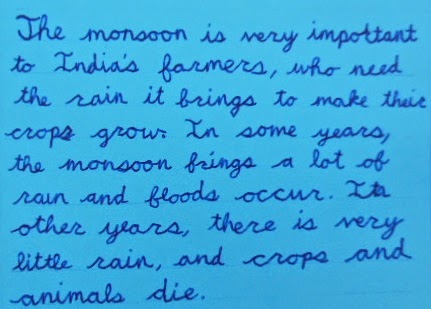 The monsoon is very important
to India's farmers, who need
the rain it brings to make their
crops grow. In some years,
the monsoon brings a lot of
rain and floods occur. In
other years, there is very
little rain, and crops and
animals die.